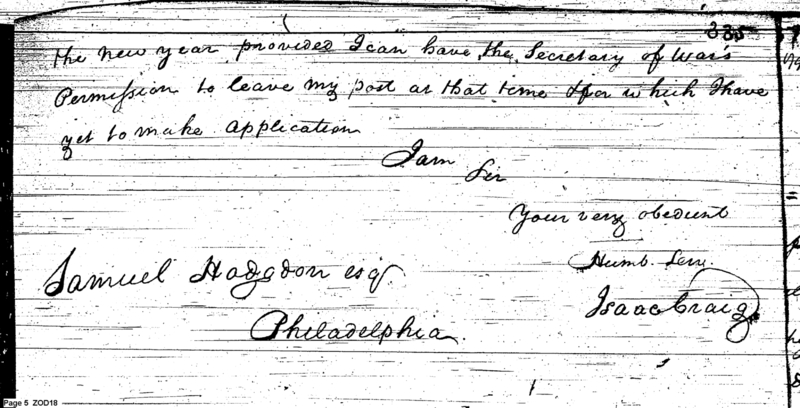 335
the new year provided I can have the Secretary of War's
Permission to leave my post at that time & for which I have
yet to make application
I am
Sir
Your very obedient
Humb. Serv.
Samuel Hodgdon esqr
Isaac Craig
Philadelphia
Page 5 ZOD18